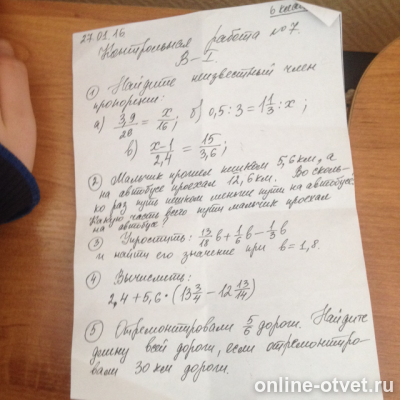 27.01.16
6 класс
Контрольная работа №7.
В-I.
① Найдите неизвестный член
пропорции:
а) 3,9/28 = x/16; б) 0,5 : 3 = 1 1/3 : x;
в) x-1/2,4 = 15/3,6;
② Мальчик прошел пешком 5,6 км, а
на автобусе проехал 12,6 км. Во сколь-
ко раз путь пешком меньше пути на автобусе?
Какую часть всего пути мальчик проехал
на автобусе?
③ Упростить: 13/18 в + 1/6 в - 1/3 в
и найти его значение при в = 1,8.
④ Вычислить:
2,4 + 5,6 · (13 3/4 - 12 13/14)
⑤ Отремонтировали 5/6 дороги. Найдите
длину всей дороги, если отремонтиро-
вали 30 км дороги.
online-otvet.ru